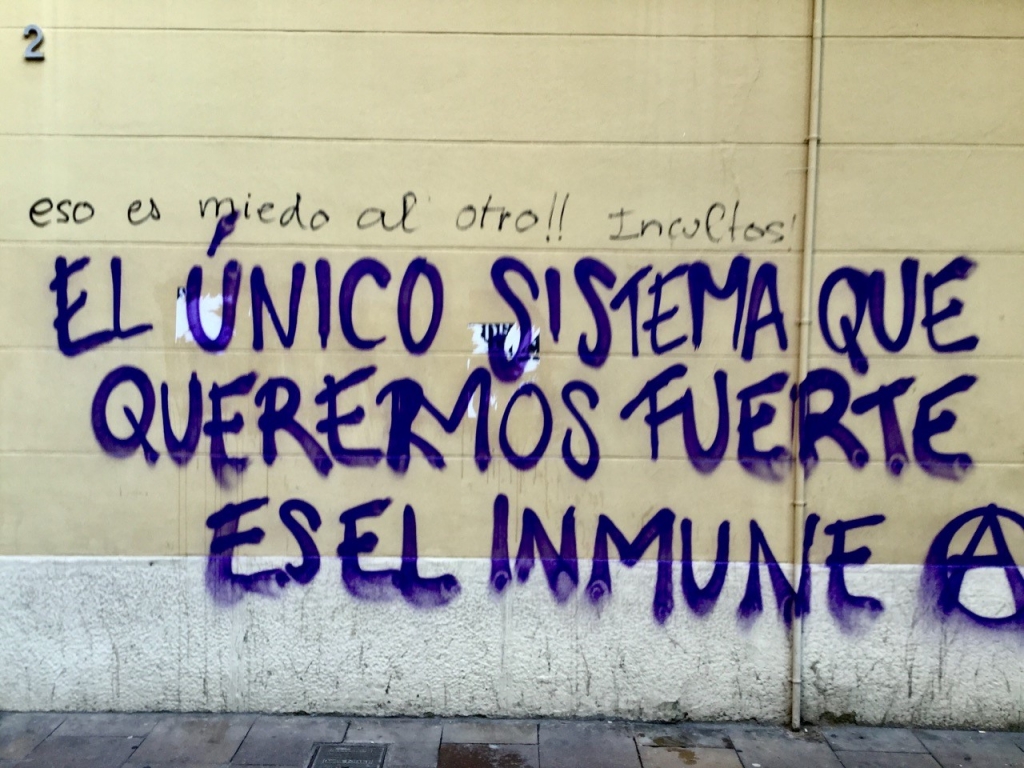 2
eso es miedo al otro!! Incultos!
EL ÚNICO SISTEMA QUE
QUEREMOS FUERTE
ES EL INMUNE Ⓐ